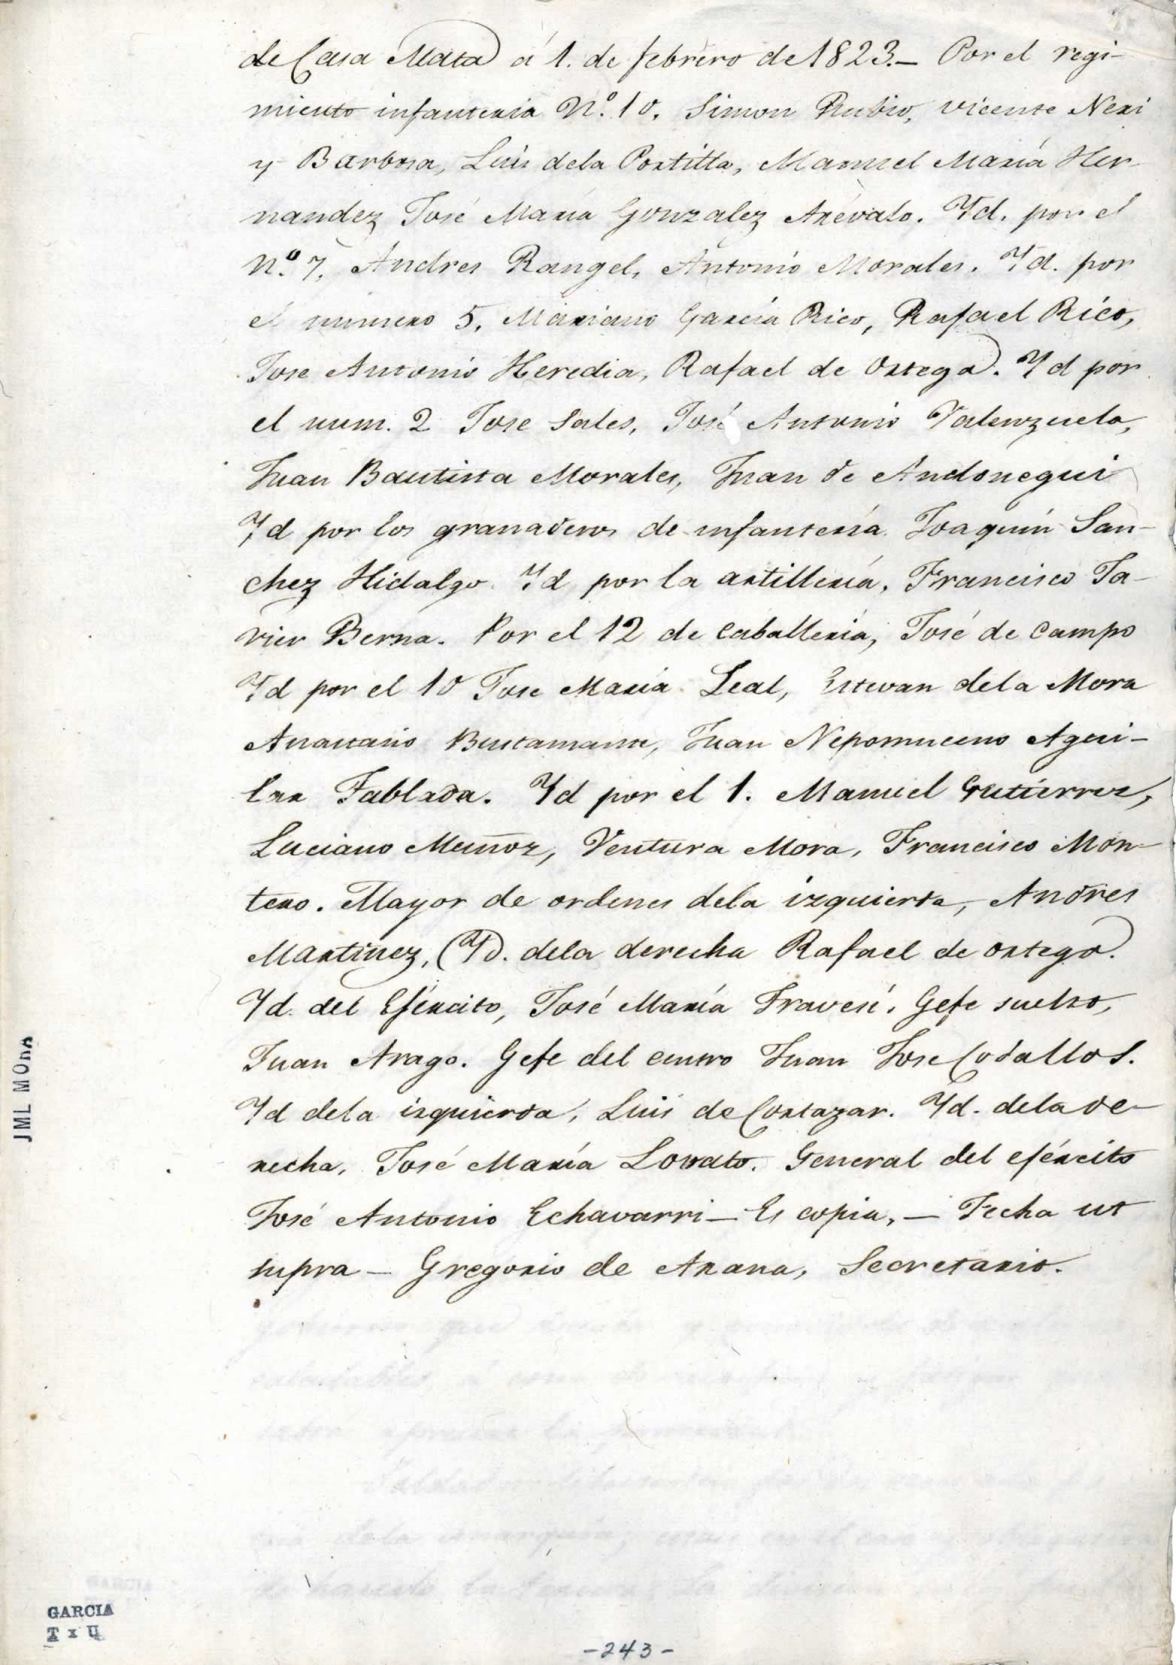 de Casa Mata á 1. de febrero de 1823.— Por el regi-
miento infanteria N.º 10, Simon Rubio, Vicente Neri
y Barbosa, Luis dela Portilla, Manuel María Her-
nandez José María Gonzalez Arévalo. Yd. por el
n.º 7, Andres Rangel, Antonio Morales. Yd. por
el numero 5, Mariano García Rico, Rafael Rico,
Jose Antonio Heredia, Rafael de Ortega. Yd por
el num. 2 Jose Sales, José Antonio Valenzuela,
Juan Bautista Morales, Juan de Andonegui
Yd por los granaderos de infantería Joaquín San-
chez Hidalgo. Yd por la artillería, Francisco Ja-
vier Berna. Por el 12 de caballería, José de Campo
Yd por el 10 Jose Maria Leal, Estevan dela Mora
Anastasio Bustamante, Juan Nepomuceno Agui-
lar Tablada. Yd por el 1. Manuel Gutierrez,
Luciano Muñoz, Ventura Mora, Francisco Mon-
tero. Mayor de ordenes dela izquierda, Andres
Martinez, Yd. dela derecha Rafael de Ortega.
Yd. del Ejército, José María Travesí. Gefe suelto,
Juan Arago. Gefe del centro Juan Jose Codallos.
Yd dela izquierda, Luis de Cortazar. Yd. dela de-
recha, José María Lovato. General del ejército
José Antonio Echavarri— Es copia,— Fecha ut
supra — Gregorio de Arana, Secretario.
JML MORA
GARCIA
T x U
-243-